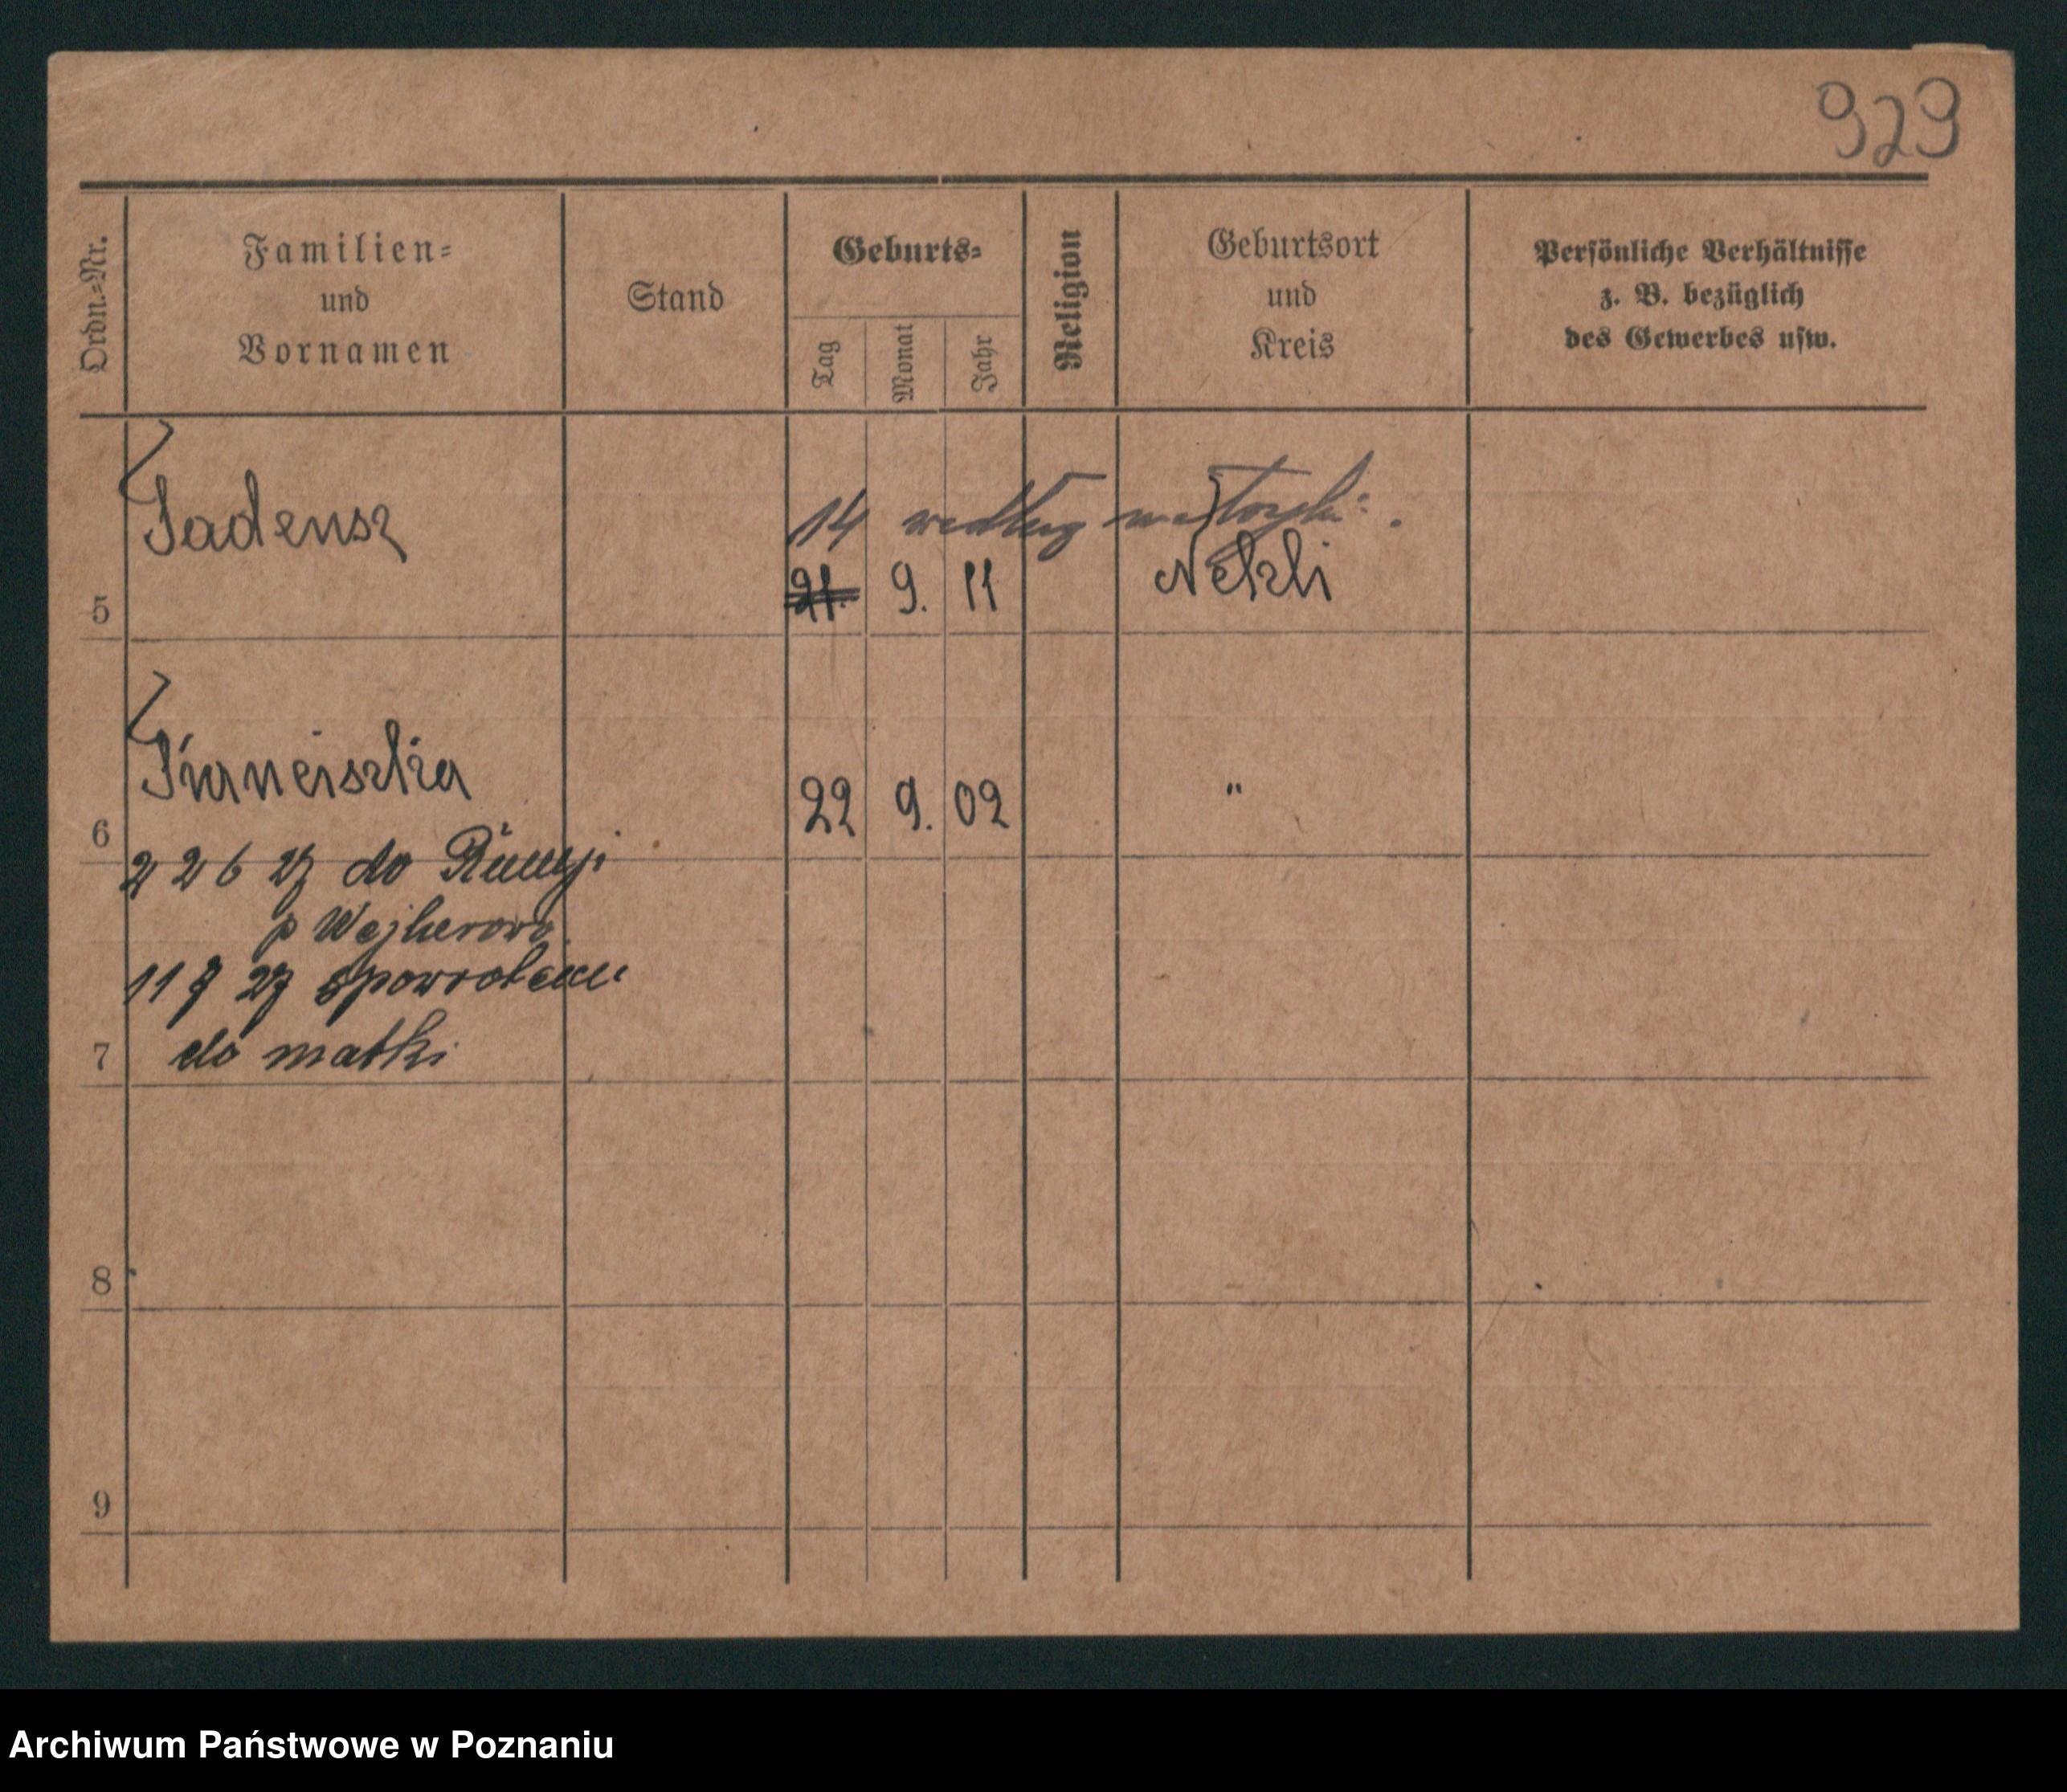 929
Ordn.-Nr.
Familien-
und
Vornamen
Stand
Geburts-
Tag
Monat
Jahr
Religion
Geburtsort
und
Kreis
Persönliche Verhältnisse
z. B. bezüglich
des Gewerbes usw.
14 według metryki.
Tadeusz
5
21. 9. 11 Nekli
Franciszka
6
22 9. 02 "
22 6 27 do Rumji
p Wejherowo
11 7 27 spowrotem
do matki
7
8
9
Archiwum Państwowe w Poznaniu